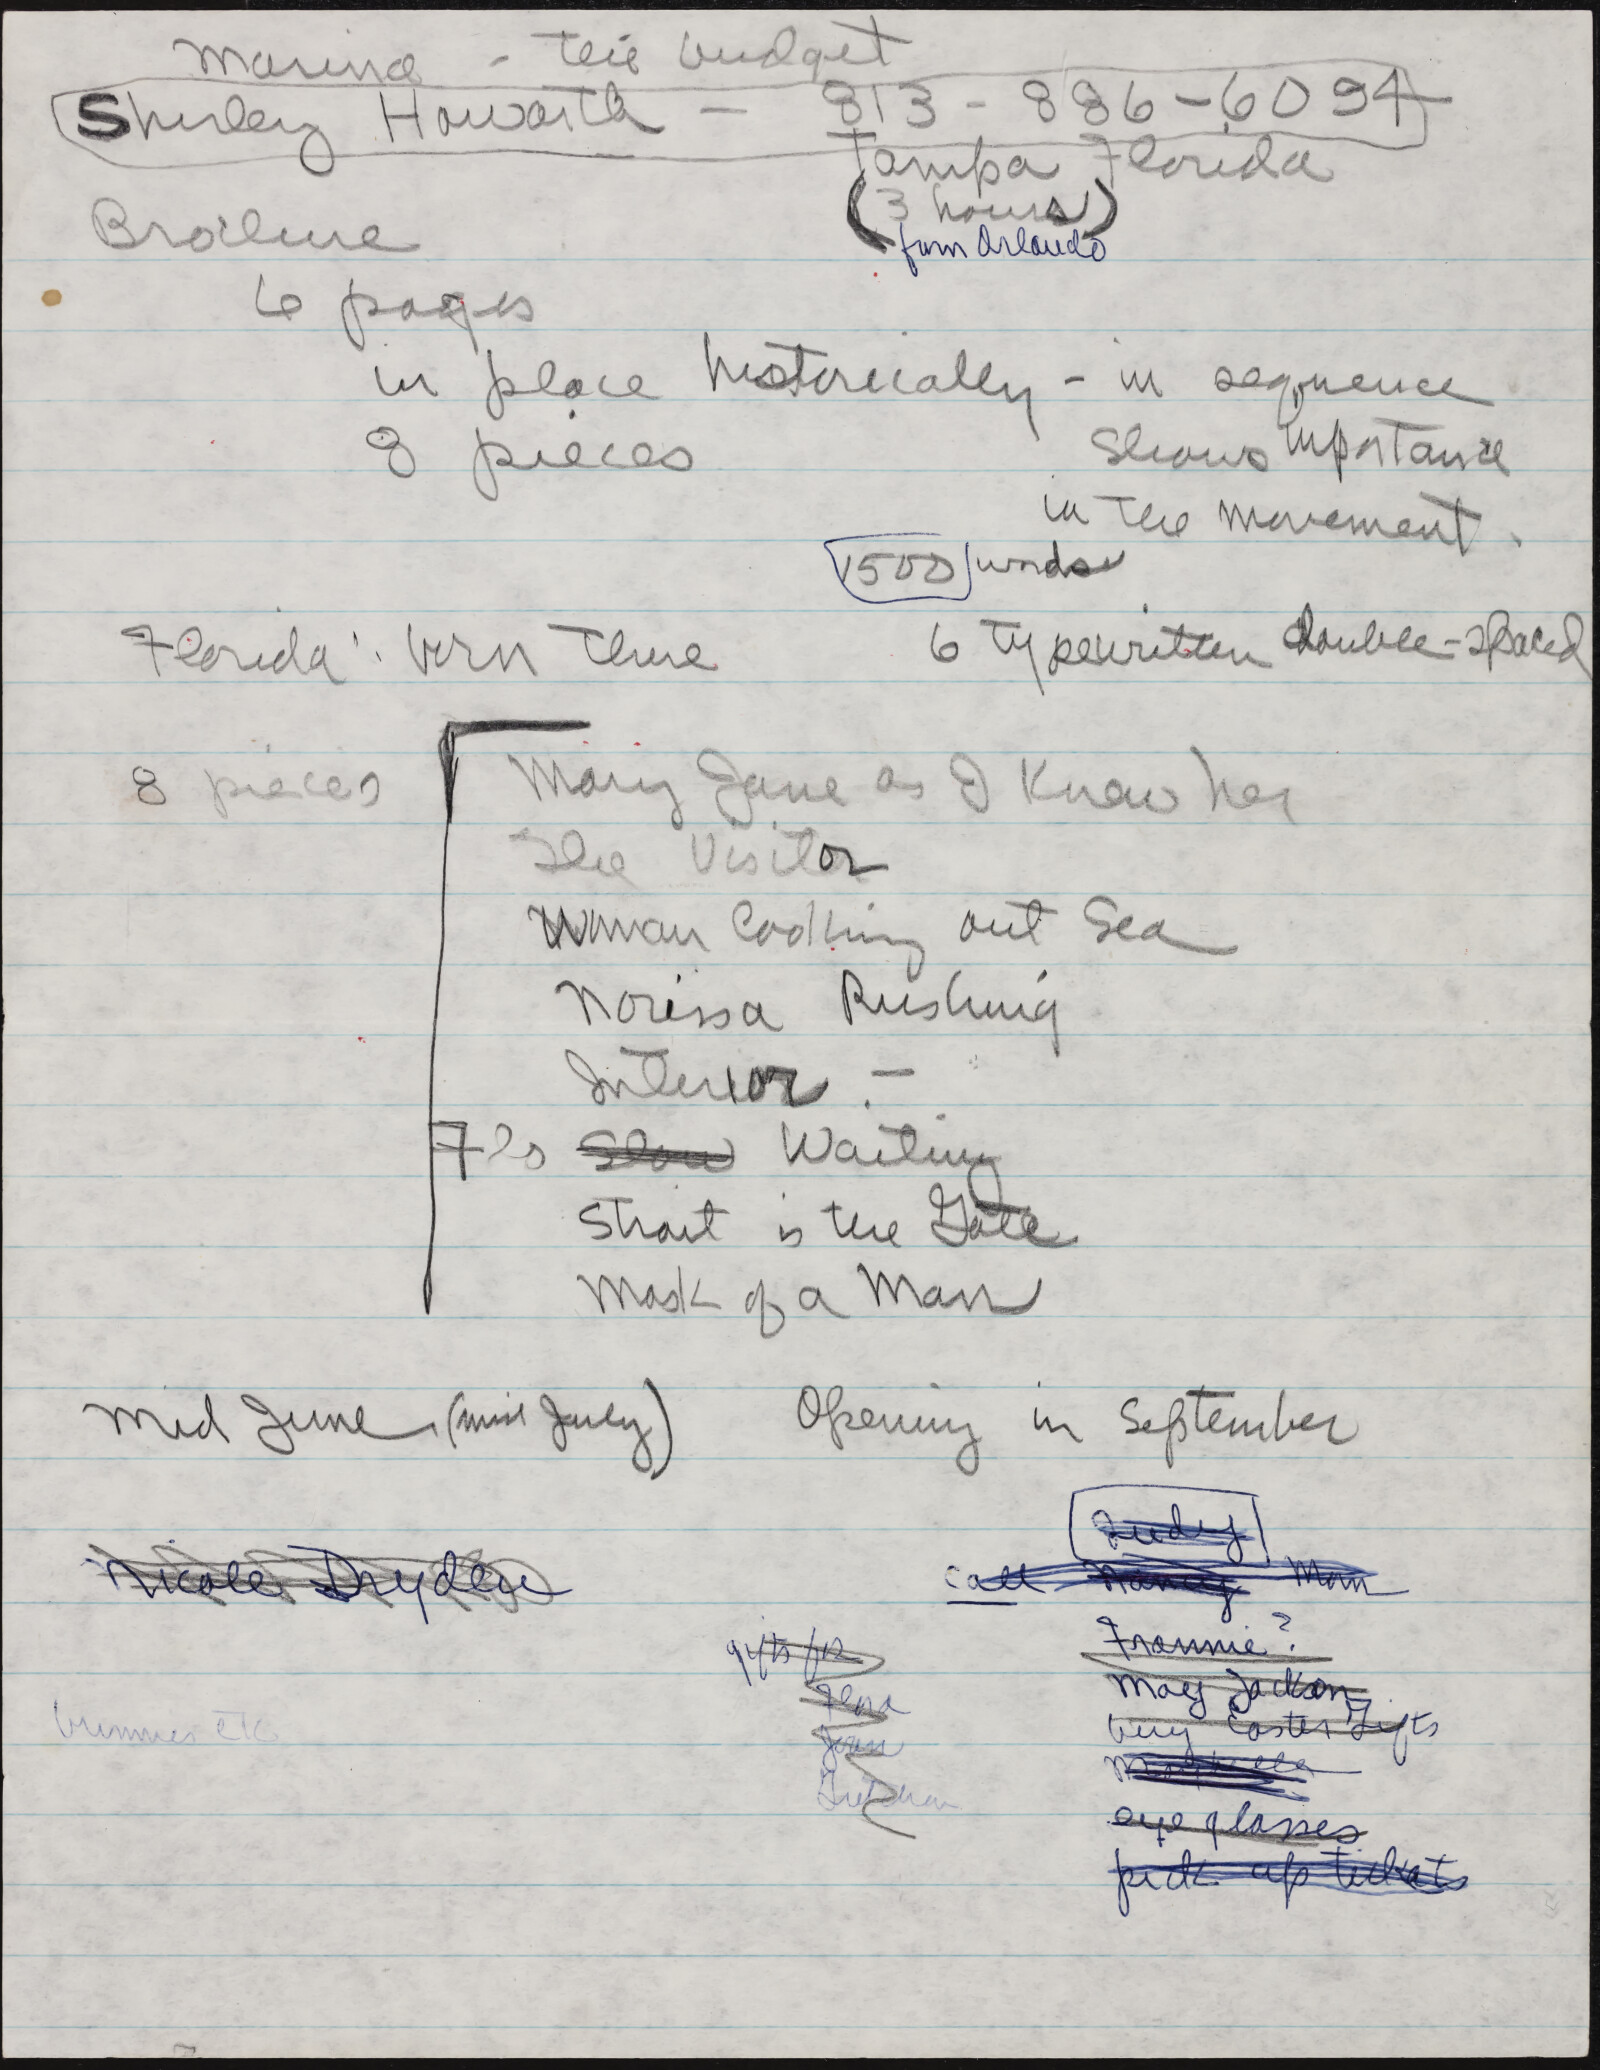 Marina - the budget
Shirley Howarth - 813-886-6094
Tampa Florida
(3 hours)
from Orlando
Brochure
6 pages
in place historically - in sequence
8 pieces shows importance
in the movement.
1500 words
Florida: born there 6 typewritten double-spaced
8 pieces Mary Jane as I Knew her
The Visitor
Woman Looking out Sea
Norissa Rushing
Interior -
7 is Slow Waiting
Strait is the Gate
Mask of a Man
Mid June (mid July) Opening in September
Judy
Nicole Dryden call Nancy Mom
Frannie?
gifts for
Mary Jackson
Flora
buy Easter Gifts
Joan
Gretchen
eye glasses
pick up tickets